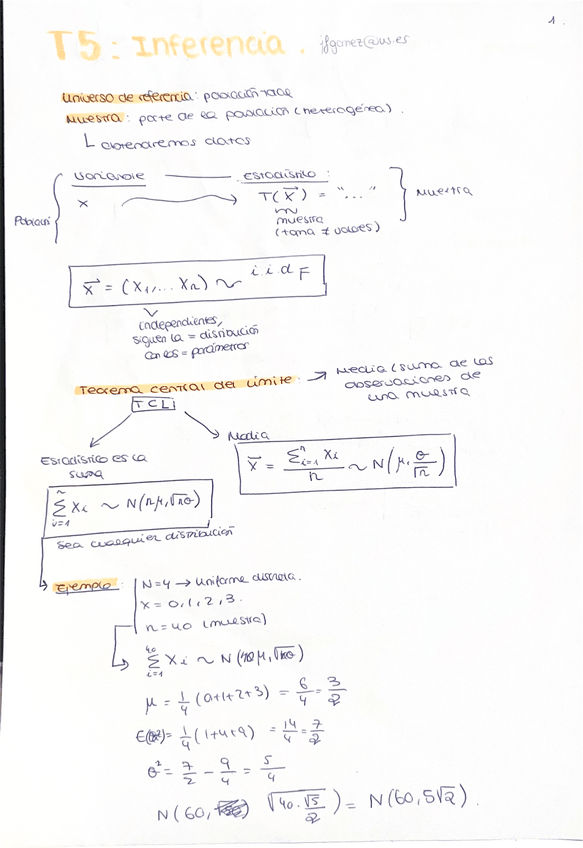 1.
T5: Inferencia. jfgomez@us.es
Universo de referencia: población total
Muestra: parte de la población (heterogénea).
↳ obtendremos datos
Variable — estadístico:
Población { x → T(X⃗) = "..." } Muestra
muestra
(toma ≠ valores)
X⃗ = (X₁,... Xn) ~ i.i.d F
independientes,
siguen la = distribución
con los = parámetros
Teorema central del límite: → Media (suma de las
observaciones de
una muestra
TCL
Media
Estadístico es la
suma
X̄ = Σⁿᵢ₌₁ Xi / n ~ N(μ, σ/√n)
Σⁿᵢ₌₁ Xi ~ N(nμ, √nσ)
sea cualquier distribución
→ Ejemplo: N=4 → uniforme discreta.
x = 0,1,2,3.
n = 40 (muestra)
Σ⁴⁰ᵢ₌₁ Xi ~ N(40μ, √40σ)
μ = 1/4 (0+1+2+3) = 6/4 = 3/2
E(x²) = 1/4 (1+4+9) = 14/4 = 7/2
σ² = 7/2 - 9/4 = 5/4
N(60, √40·√5/2) = N(60, 5√2).